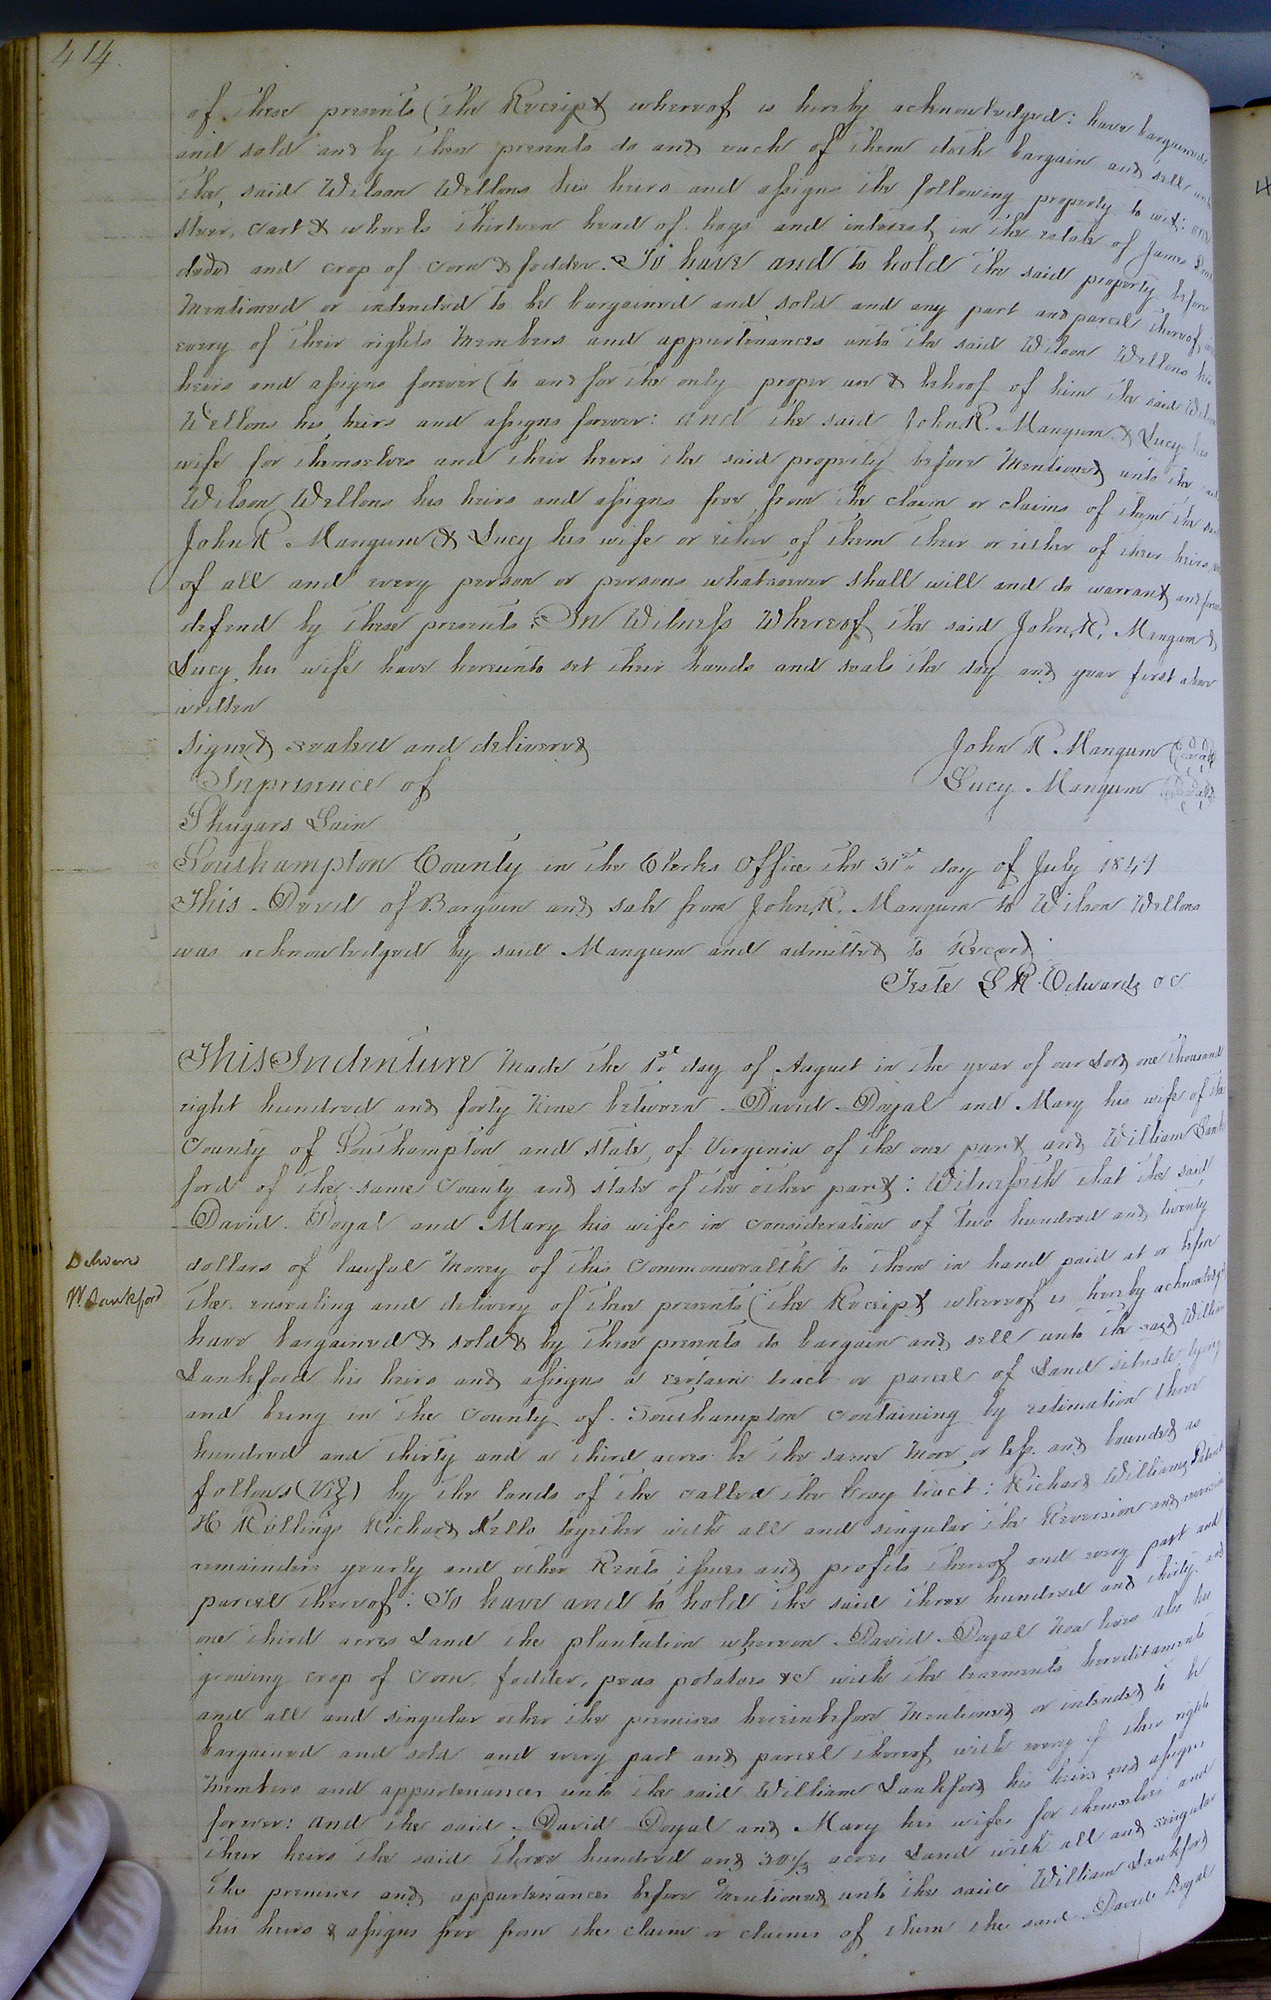 414.
of these presents (the Receipt whereof is hereby acknowledged: have bargained
and sold and by these presents do and each of them doth bargain and sell unto
the said Wilson Wellons his heirs and assigns the following property to wit: one
steer, cart & wheels thirteen head of hogs and interest in the estate of James
decd and crop of corn & fodder. To have and to hold the said property before
mentioned or intended to be bargained and sold and any part and parcel thereof and
every of their rights members and appurtenances unto the said Wilson Wellons his
heirs and assigns forever (to and for the only proper use & behoof of him the said Wilson
Wellons his heirs and assigns forever: and the said John R. Mangum & Lucy his
wife for themselves and their heirs the said property before mentioned unto the said
Wilson Wellons his heirs and assigns free from the claim or claims of them the said
John R Mangum & Lucy his wife or either of them their or either of their heirs and
of all and every person or persons whatsoever shall will and do warrant and forever
defend by these presents. In Witness Whereof the said John R. Mangum &
Lucy his wife have hereunto set their hands and seals the day and year first above
written
Signed sealed and delivered John R Mangum (seal)
In presence of Lucy Mangum (seal)
Shugars Lain
Southampton County in the Clerks Office the 31st day of July 1849
This Deed of Bargain and sale from John R. Mangum to Wilson Wellons
was acknowledged by said Mangum and admitted to Record
Teste L R Edwards cc
This Indenture made the 1st day of August in the year of our Lord one thousand
eight hundred and forty nine between David Doyal and Mary his wife of the
County of Southampton and State of Virginia of the one part and William Lank
ford of the same County and State of the other part: Witnesseth that the said
David Doyal and Mary his wife in consideration of two hundred and twenty
Delivered
W Lankford
dollars of lawful money of this Commonwealth to them in hand paid at or before
the ensealing and delivery of these presents (the Receipt whereof is hereby acknowledged
have bargained & sold & by these presents do bargain and sell unto the said William
Lankford his heirs and assigns a certain tract or parcel of Land situate lying
and being in the County of Southampton containing by estimation three
hundred and thirty and a third acres be the same more or less and bounded as
follows (Viz) by the lands of the called the Gray tract: Richard Williams
H Rollings Richard together with all and singular the Reversion and reversions
remainders yearly and other Rents issues and profits thereof and every part and
parcel thereof: To have and to hold the said three hundred and thirty and
one third acres Land the plantation whereon David Doyal now lives also his
growing crop of corn, fodder, peas potatoes &c with the tenements hereditaments
and all and singular other the premises hereinbefore mentioned or intended to be
bargained and sold and every part and parcel thereof with every of their rights
members and appurtenances unto the said William Lankford his heirs and assigns
forever: and the said David Doyal and Mary his wife for themselves and
their heirs the said three hundred and 30⅓ acres Land with all and singular
the premises and appurtenances before mentioned unto the said William Lankford
his heirs & assigns free from the claim or claims of them the said David Doyal